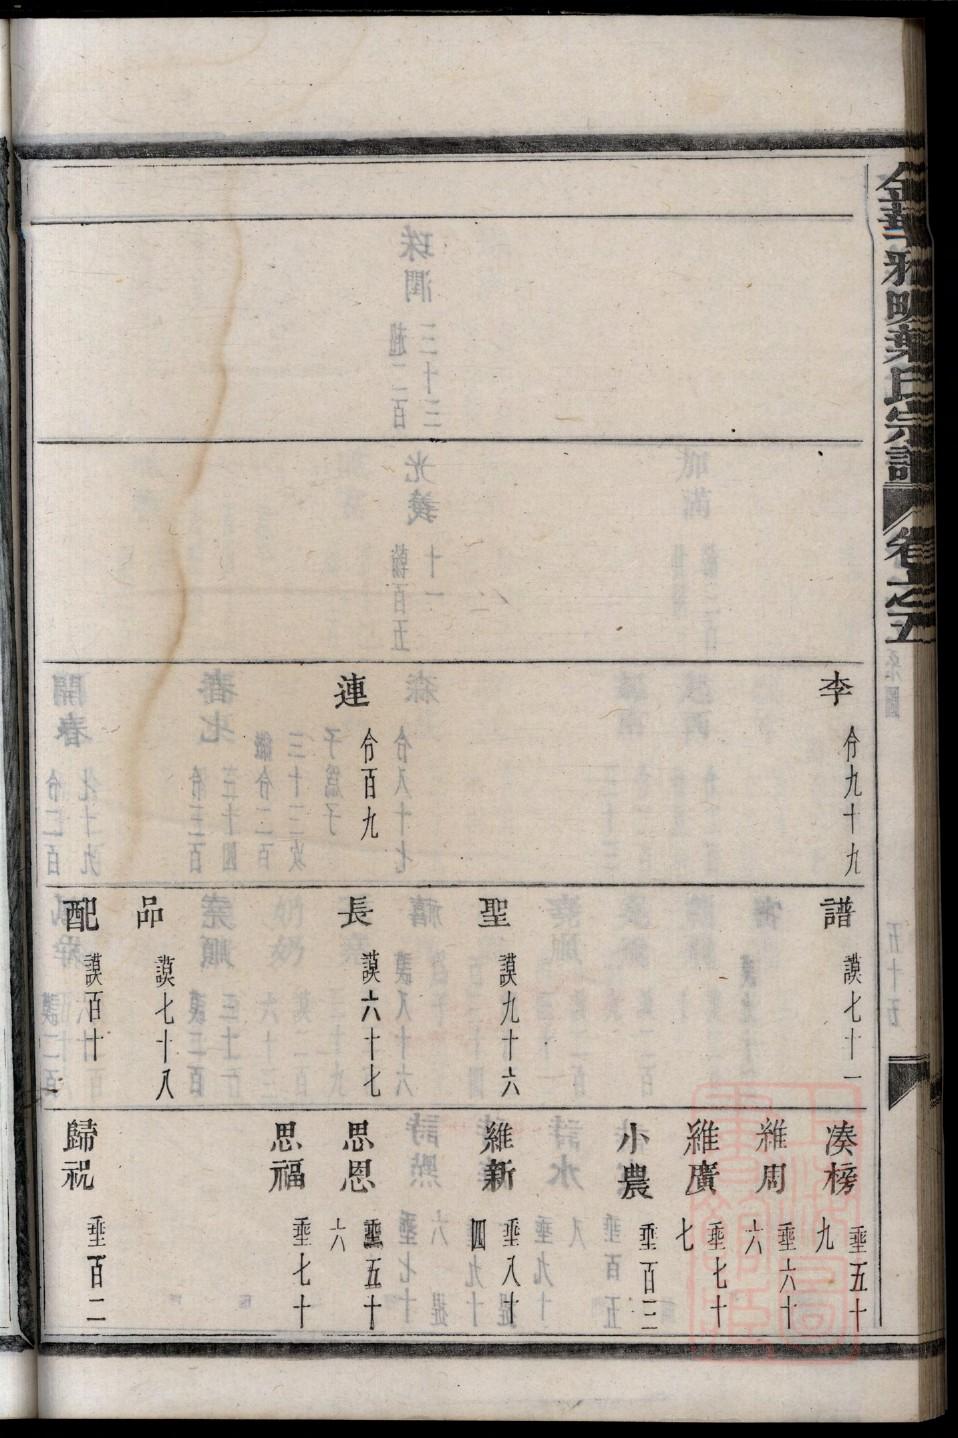 金華
葉氏宗譜
卷之五
李 佾九十九
連 佾百九
譜 謨七十一
聖 謨九十六
長 謨六十七
品 謨七十八
配 謨百十一
湊榜 垂五十九
維周 垂六十六
維廣 垂七十七
小農 垂百三
維新 垂八十四
思恩 垂五十六
思福 垂七十
歸祝 垂百二